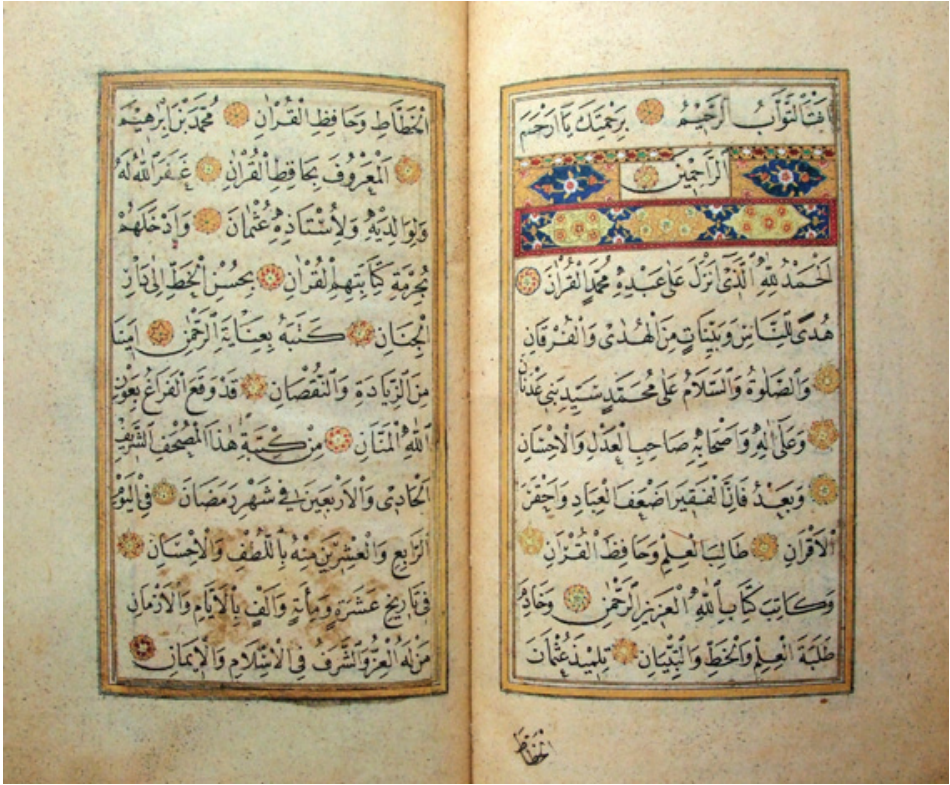 اَنْتَ التَّوَّابُ الرَّحِيمُ بِرَحْمَتِكَ يَا اَرْحَمَ
الرَّاحِمِينَ
اَلْحَمْدُ لِلّٰهِ الَّذِى اَنْزَلَ عَلٰى عَبْدِهِ مُحَمَّدٍ الْقُرْاٰنَ
هُدًى لِلنَّاسِ وَبَيِّنَاتٍ مِنَ الْهُدٰى وَالْفُرْقَانِ
وَالصَّلٰوةُ وَالسَّلَامُ عَلٰى مُحَمَّدٍ سَيِّدِ بَنِى عَدْنَانَ
وَعَلٰى اٰلِهِ وَاَصْحَابِهِ صَاحِبِ الْعَدْلِ وَالْاِحْسَانِ
وَبَعْدُ فَاِنَّ الْفَقِيرَ اَضْعَفَ الْعِبَادِ وَاَحْقَرَ
الْاَقْرَانِ طَالِبَ الْعِلْمِ وَحَافِظَ الْقُرْاٰنِ
وَكَاتِبَ كِتَابِ اللّٰهِ الْعَزِيزِ الرَّحْمٰنِ وَخَادِمَ
طَلَبَةِ الْعِلْمِ وَالْخَطِّ وَالتِّبْيَانِ تِلْمِيذَ عُثْمَانَ
الخطاط
الْخَطَّاطِ وَحَافِظِ الْقُرْاٰنِ مُحَمَّدَ بْنَ اِبْرٰهِيمَ
الْمَعْرُوفَ بِحَافِظِ الْقُرْاٰنِ غَفَرَ اللّٰهُ لَهُ
وَلِوَالِدَيْهِ وَلِاُسْتَاذِهِ عُثْمَانَ وَاَدْخَلَهُمْ
بِحُرْمَةِ كِتَابَتِهِمِ الْقُرْاٰنَ بِحُسْنِ الْخَطِّ اِلٰى دَارِ
الْجِنَانِ كَتَبَهُ بِعِنَايَةِ الرَّحْمٰنِ اٰمِنًا
مِنَ الزِّيَادَةِ وَالنُّقْصَانِ قَدْ وَقَعَ الْفَرَاغُ بِعَوْنِ
اللّٰهِ الْمَنَّانِ مِنْ كِتْبَةِ هٰذَا الْمُصْحَفِ الشَّرِيفِ
الْحَادِى وَالْاَرْبَعِينَ فِى شَهْرِ رَمَضَانَ فِى الْيَوْمِ
الرَّابِعِ وَالْعِشْرِينَ مِنْهُ بِاللُّطْفِ وَالْاِحْسَانِ
فِى تَارِيخِ عَشَرَةٍ وَمِأَةٍ وَاَلْفٍ بِالْاَيَّامِ وَالْاَزْمَانِ
مَنْ لَهُ الْعِزُّ وَالشَّرَفُ فِى الْاِسْلَامِ وَالْاِيمَانِ